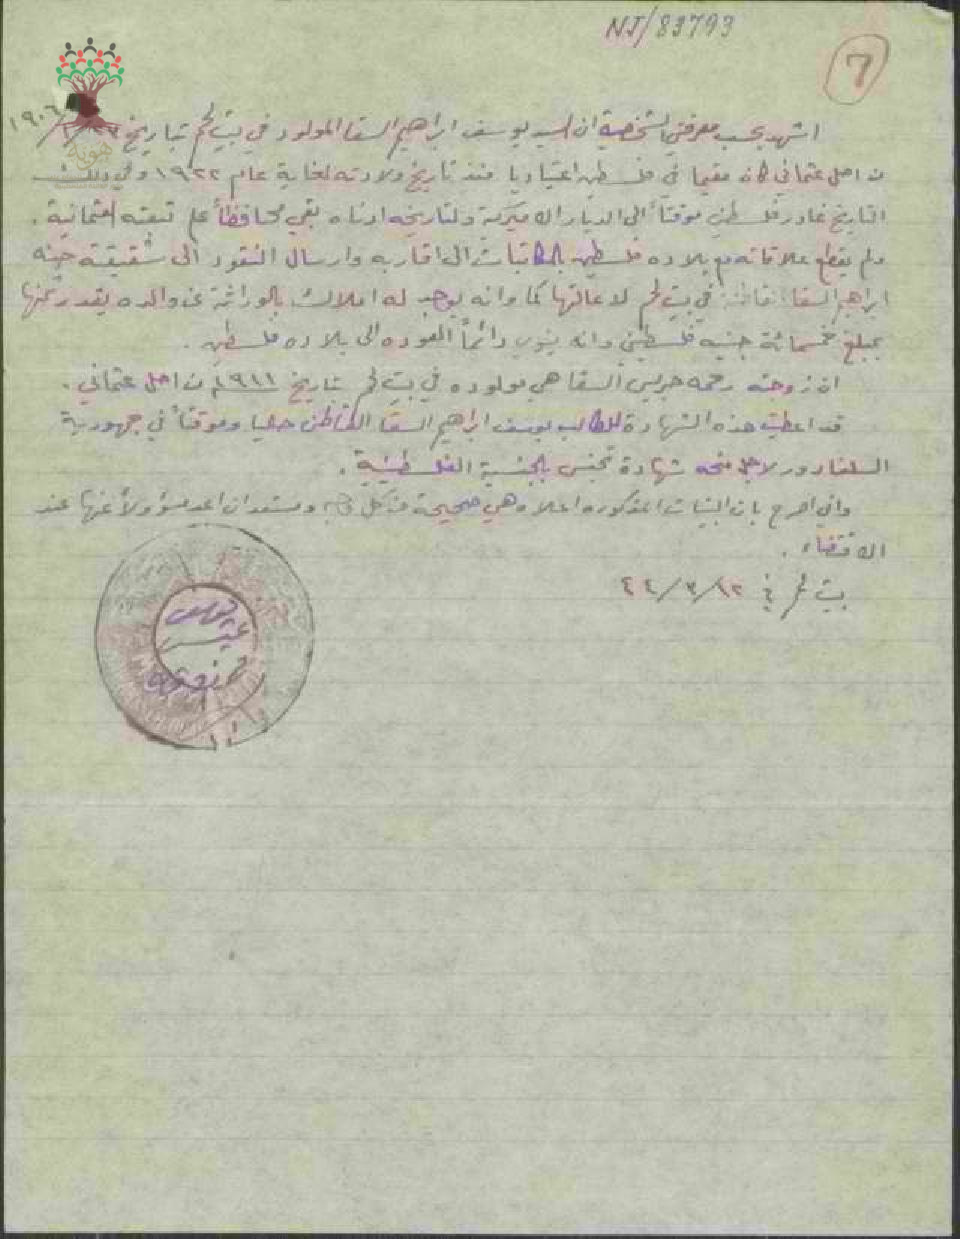 NJ/83793
7
اشهد بحسب معرفتي الشخصية ان السيد يوسف ابراهيم السقا المولود في بيت لحم بتاريخ ١٩٠٦
من اصل عثماني كان مقيما في فلسطين اعتياديا منذ تاريخ ولادته لغاية عام ١٩٢٢ وفي ذلك
التاريخ غادر فلسطين موقتاً الى الديار الاميركية ولتاريخه ادناه بقي محافظاً على تبعته العثمانية .
ولم يقطع علاقاته مع بلاده فلسطين بالمكاتبات الى اقاربه وارسال النقود الى شقيقته حنه
ابراهيم السقا القاطنة في بيت لحم لاعالتها كما وانه يوجد له املاك بالوراثة عن والده يقدر ثمنها
بمبلغ خمسمائة جنيه فلسطيني وانه ينوي دائماً العوده الى بلاده فلسطين .
ان زوجته رحمه جريس السقا هي مولوده في بيت لحم بتاريخ ١٩١١ من اصل عثماني .
قد اعطيت هذه الشهادة للطالب يوسف ابراهيم السقا القاطن حاليا وموقتاً في جمهورية
السلفادور لاجل منحه شهادة تجنس بالجنسية الفلسطينية .
واني اصرح بان البينات المذكوره اعلاه هي صحيحة من كل وجه ومستعد ان اعد مسؤولاً عنها عند
الاقتضاء .
بيت لحم في ١٢/٣/٤٤